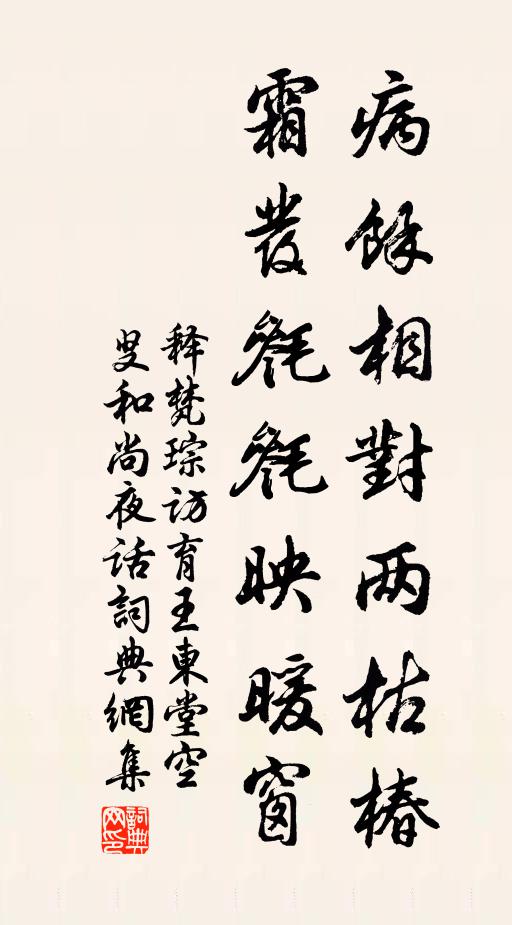 病餘相對两枯椿
霜發毿毿映暖窗
释梵琮访育王東堂空
叟和尚夜话詞典網集
詞典
网印